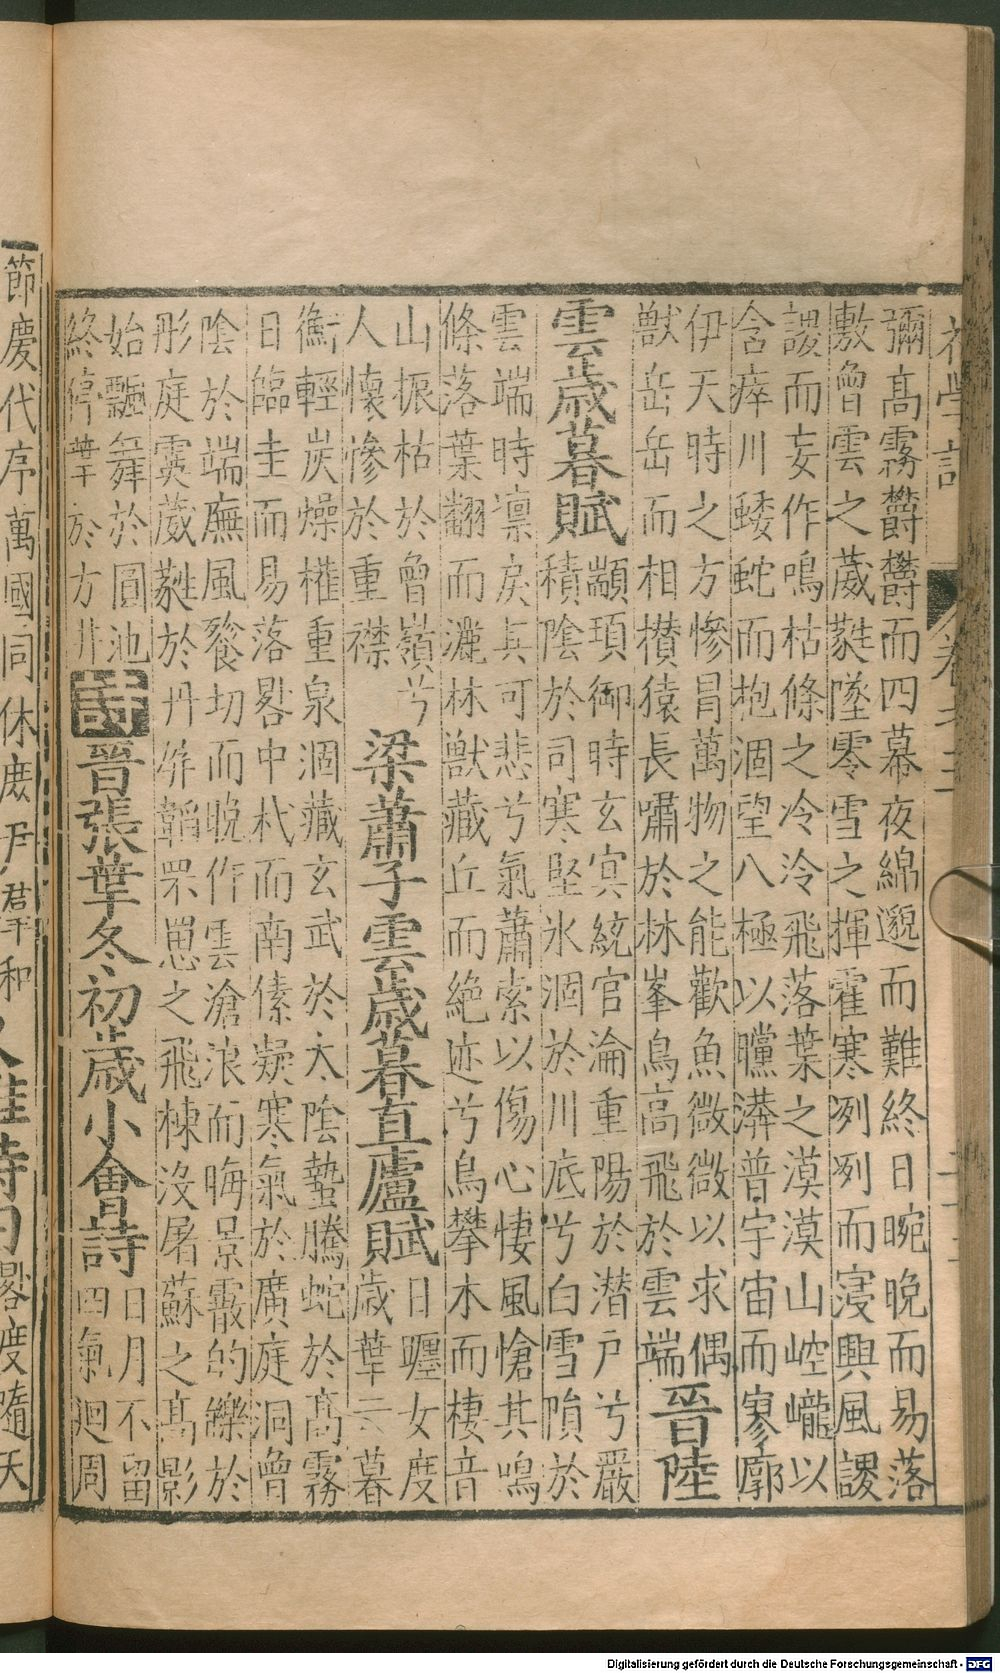 初學記 卷之三
彌高霧欝欝而四幕夜綿邈而難終日晼晚而易落
敷曾雲之葳蕤墜零雪之揮霍寒冽冽而寖興風謖
謖而妄作鳴枯條之冷冷飛落葉之漠漠山崆巄以
含瘁川蜲蛇而抱涸望八極以曭漭普宇宙而寥廓
伊天時之方慘曷萬物之能歡魚微微以求偶
獸岳岳而相攢猿長嘯於林峯鳥高飛於雲端 晉陸
雲歲暮賦
顓頊御時玄冥統官淪重陽於潜戸兮嚴
積陰於司寒堅氷涸於川底兮白雪隕於
雲端時凛戾其可悲兮氣蕭索以傷心悽風愴其鳴
條落葉翻而灑林獸藏丘而絶迹兮鳥攀木而棲音
山振枯於曾嶺兮
人懷慘於重襟
梁蕭子雲歲暮直廬賦
日躔女度
歲華云暮
衡輕炭燥權重泉涸藏玄武於太陰蟄騰蛇於高霧
日臨圭而易落晷中杙而南傃凝寒氣於廣庭洞曾
陰於端廡風飱切而晚作雲滄浪而晦景霰的皪於
彤庭霙葳蕤於丹屏韜罘罳之飛棟沒屠蘇之高影
始飄舞於圓池
終停華於方井
詩
晉張華冬初歲小會詩
日月不留
四氣迴周
節慶代序萬國同休庶尹君平和
閣度隨天
Digitalisierung gefördert durch die Deutsche Forschungsgemeinschaft - DFG